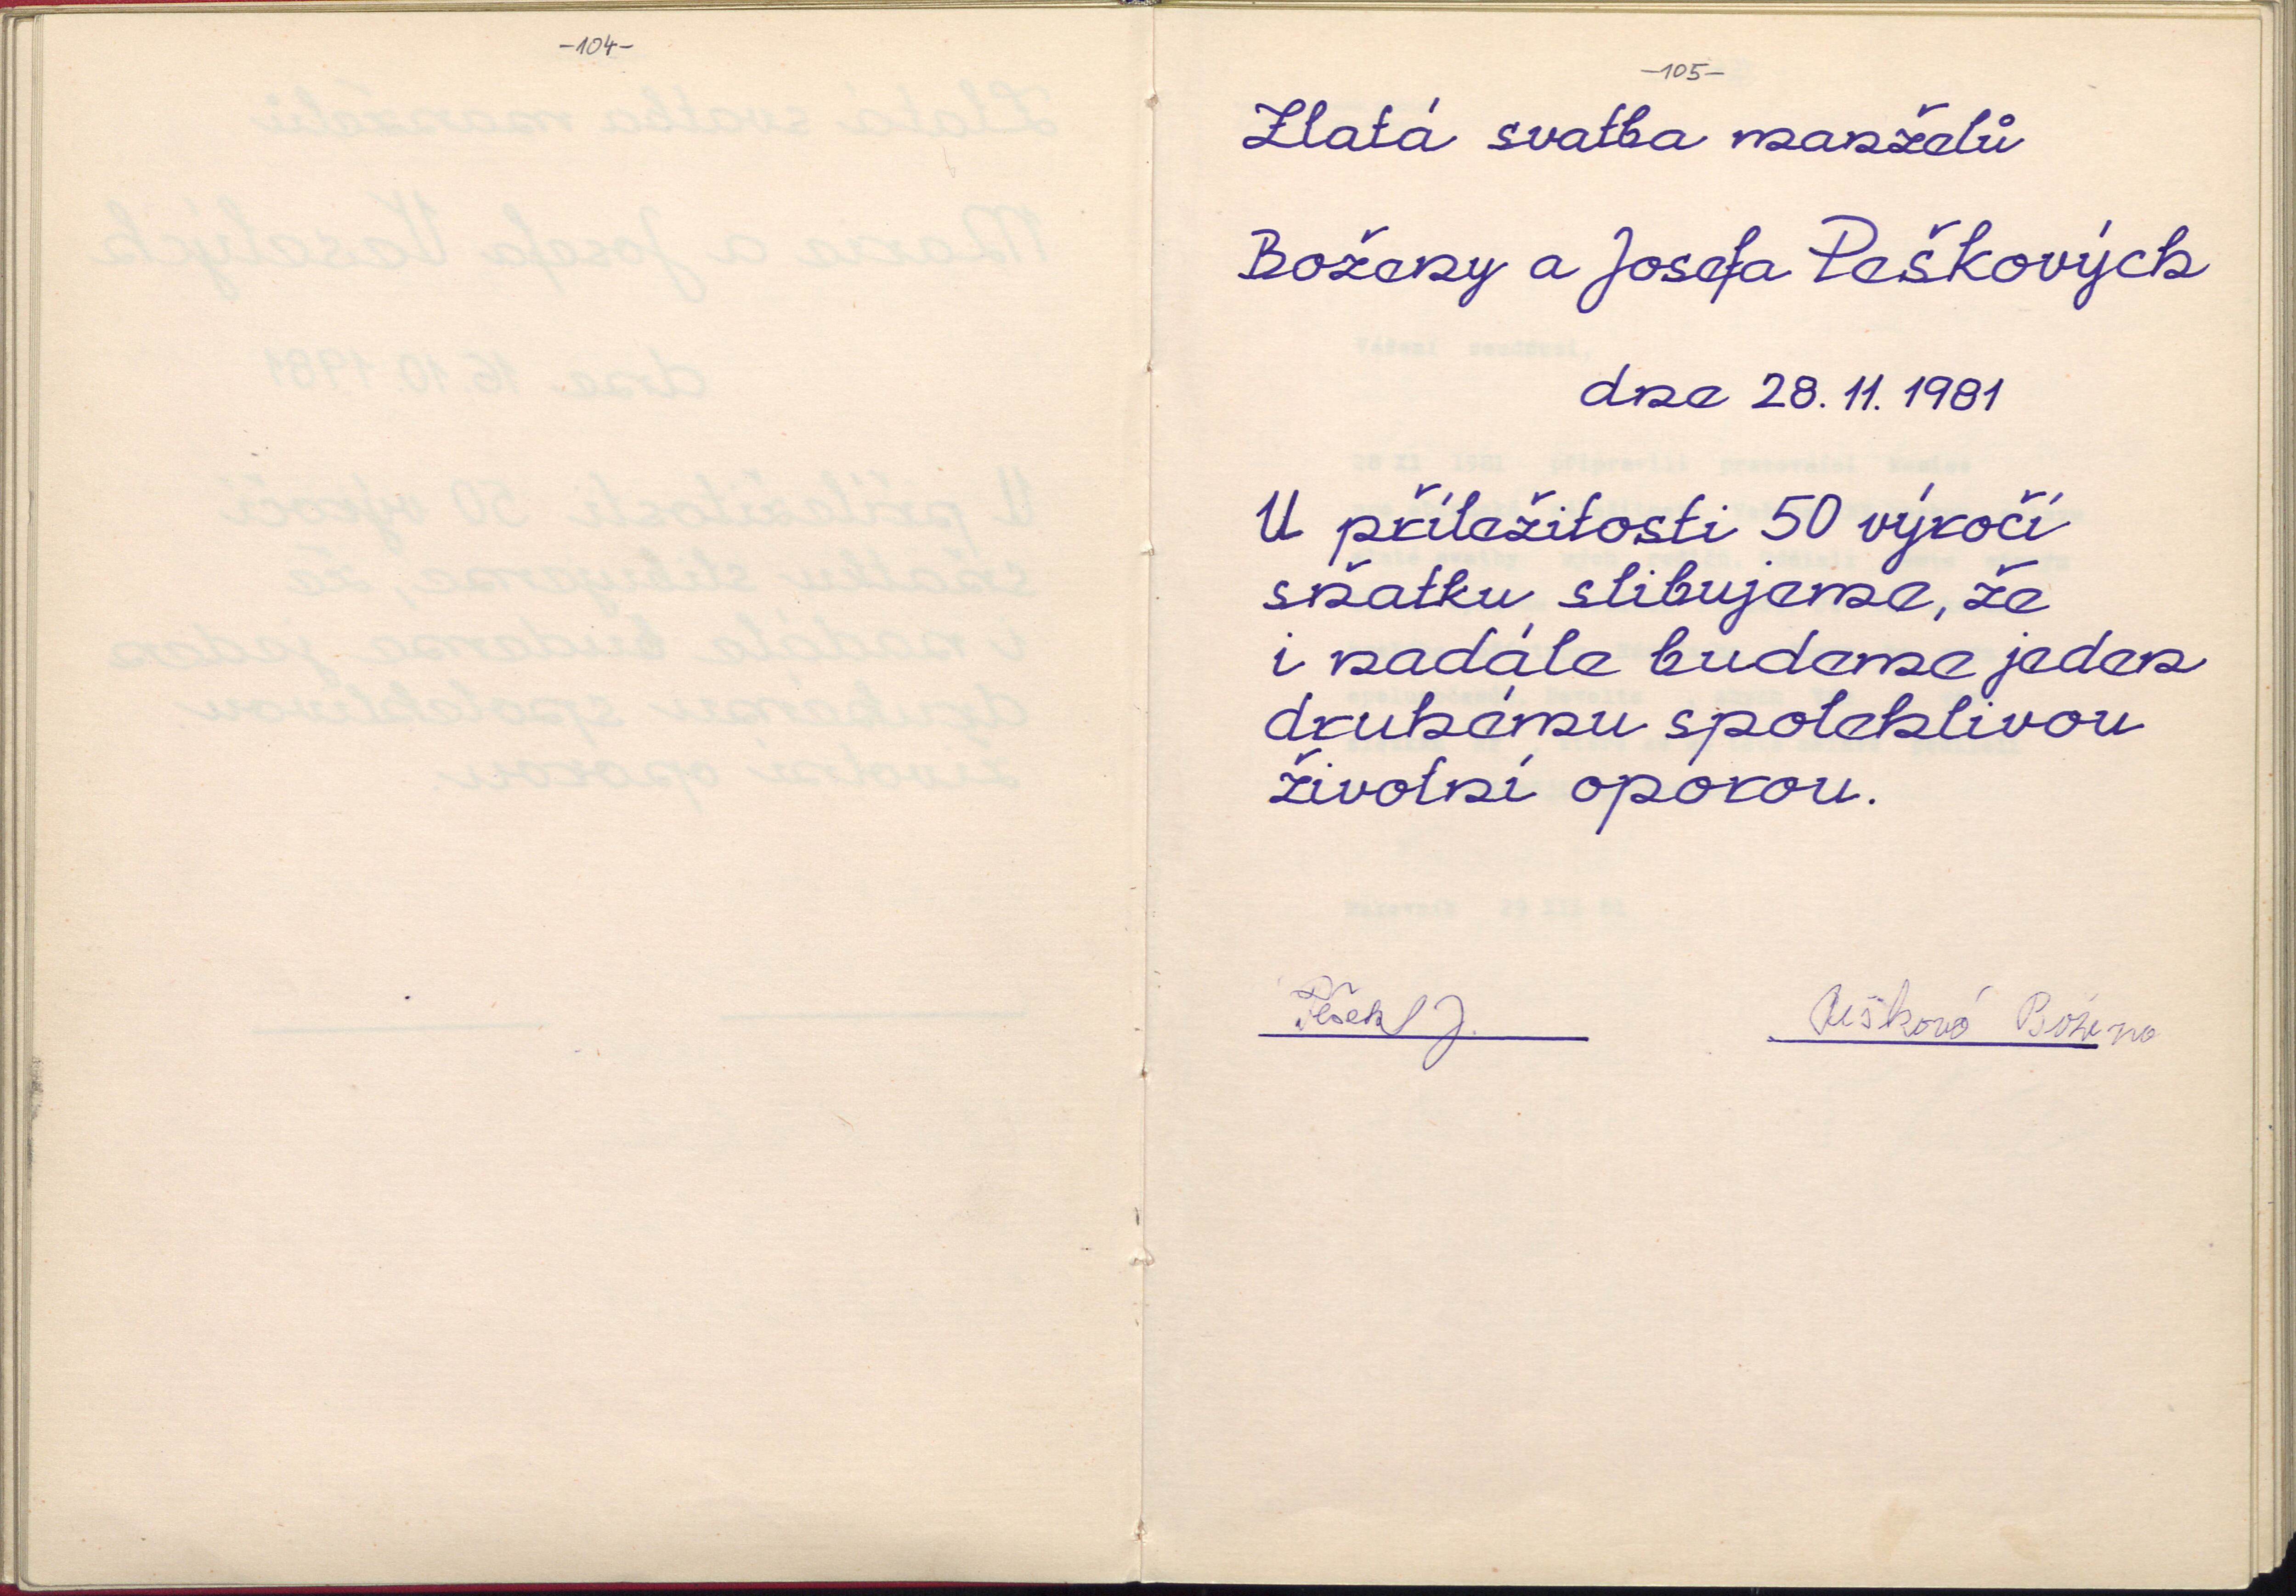 -104-
-105-
Zlatá svatba manželů
Boženy a Josefa Peškových
dne 28. 11. 1981
U příležitosti 50 výročí
sňatku slibujeme, že
i nadále budeme jeden
druhému spolehlivou
životní oporou.
Pešek J. Pešková Božena